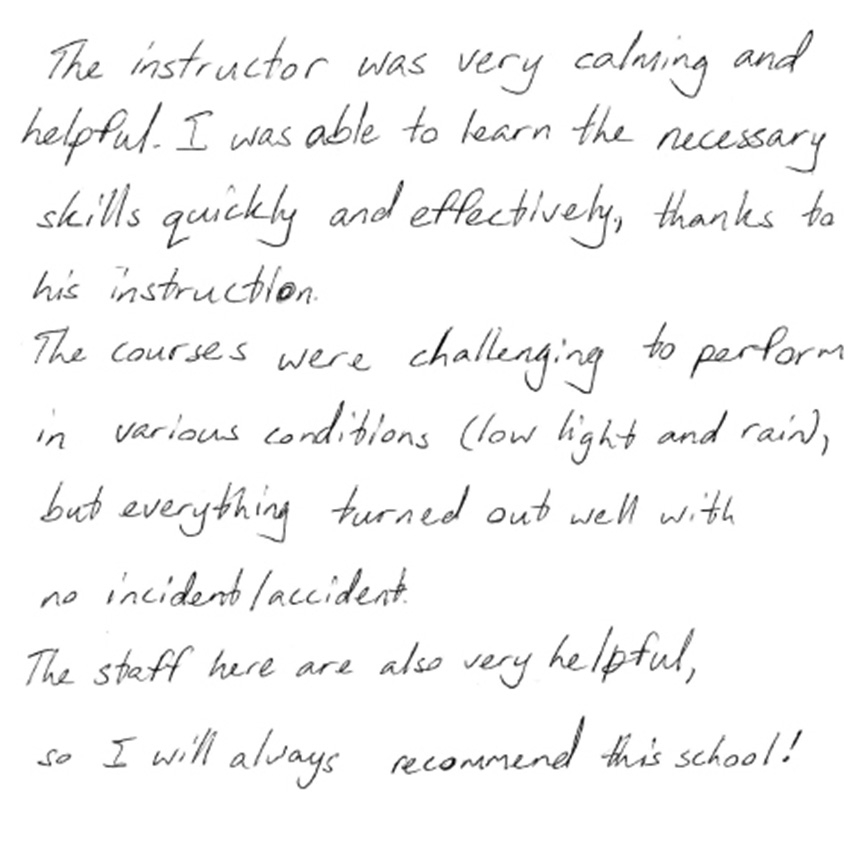 The instructor was very calming and
helpful. I was able to learn the necessary
skills quickly and effectively, thanks to
his instruction.
The courses were challenging to perform
in various conditions (low light and rain),
but everything turned out well with
no incident/accident.
The staff here are also very helpful,
so I will always recommend this school!